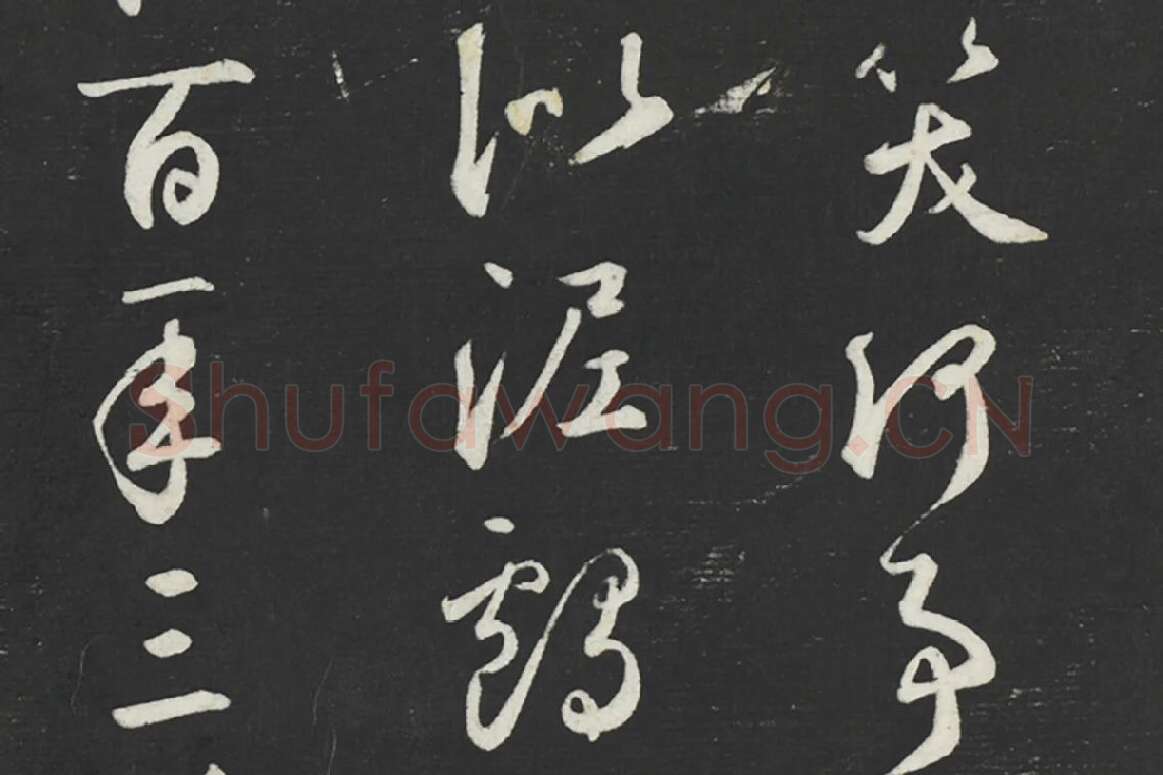 笑何事
似泥鸕
百年三
Shufawang.CN